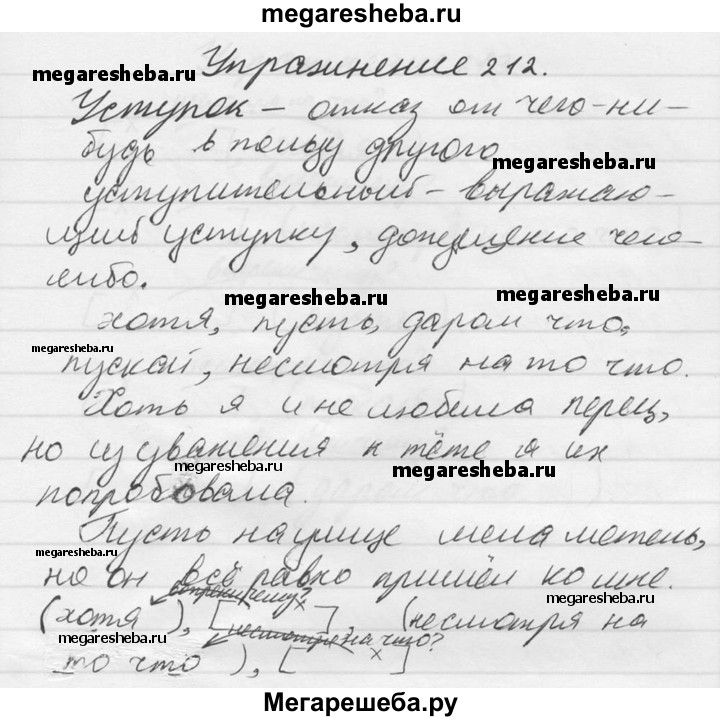 megaresheba.ru
Упражнение 212.
megaresheba.ru
Уступок – отказ от чего-ни-
будь в пользу другого
megaresheba.ru
уступительный – выражаю-
щий уступку, допущение чего-
либо.
megaresheba.ru
megaresheba.ru
хотя, пусть, даром что,
megaresheba.ru
пускай, несмотря на то что.
Хоть я и не любила перец,
но из уважения к тёте я их
megaresheba.ru
megaresheba.ru
попробовала.
Пусть на улице мела метель,
megaresheba.ru
но он всё равно пришёл ко мне.
вопреки чему?
(хотя ), [ х ], (несмотря на
megaresheba.ru
несмотря на что?
megaresheba.ru
то что ), [ х ]
Мегарешеба.ру